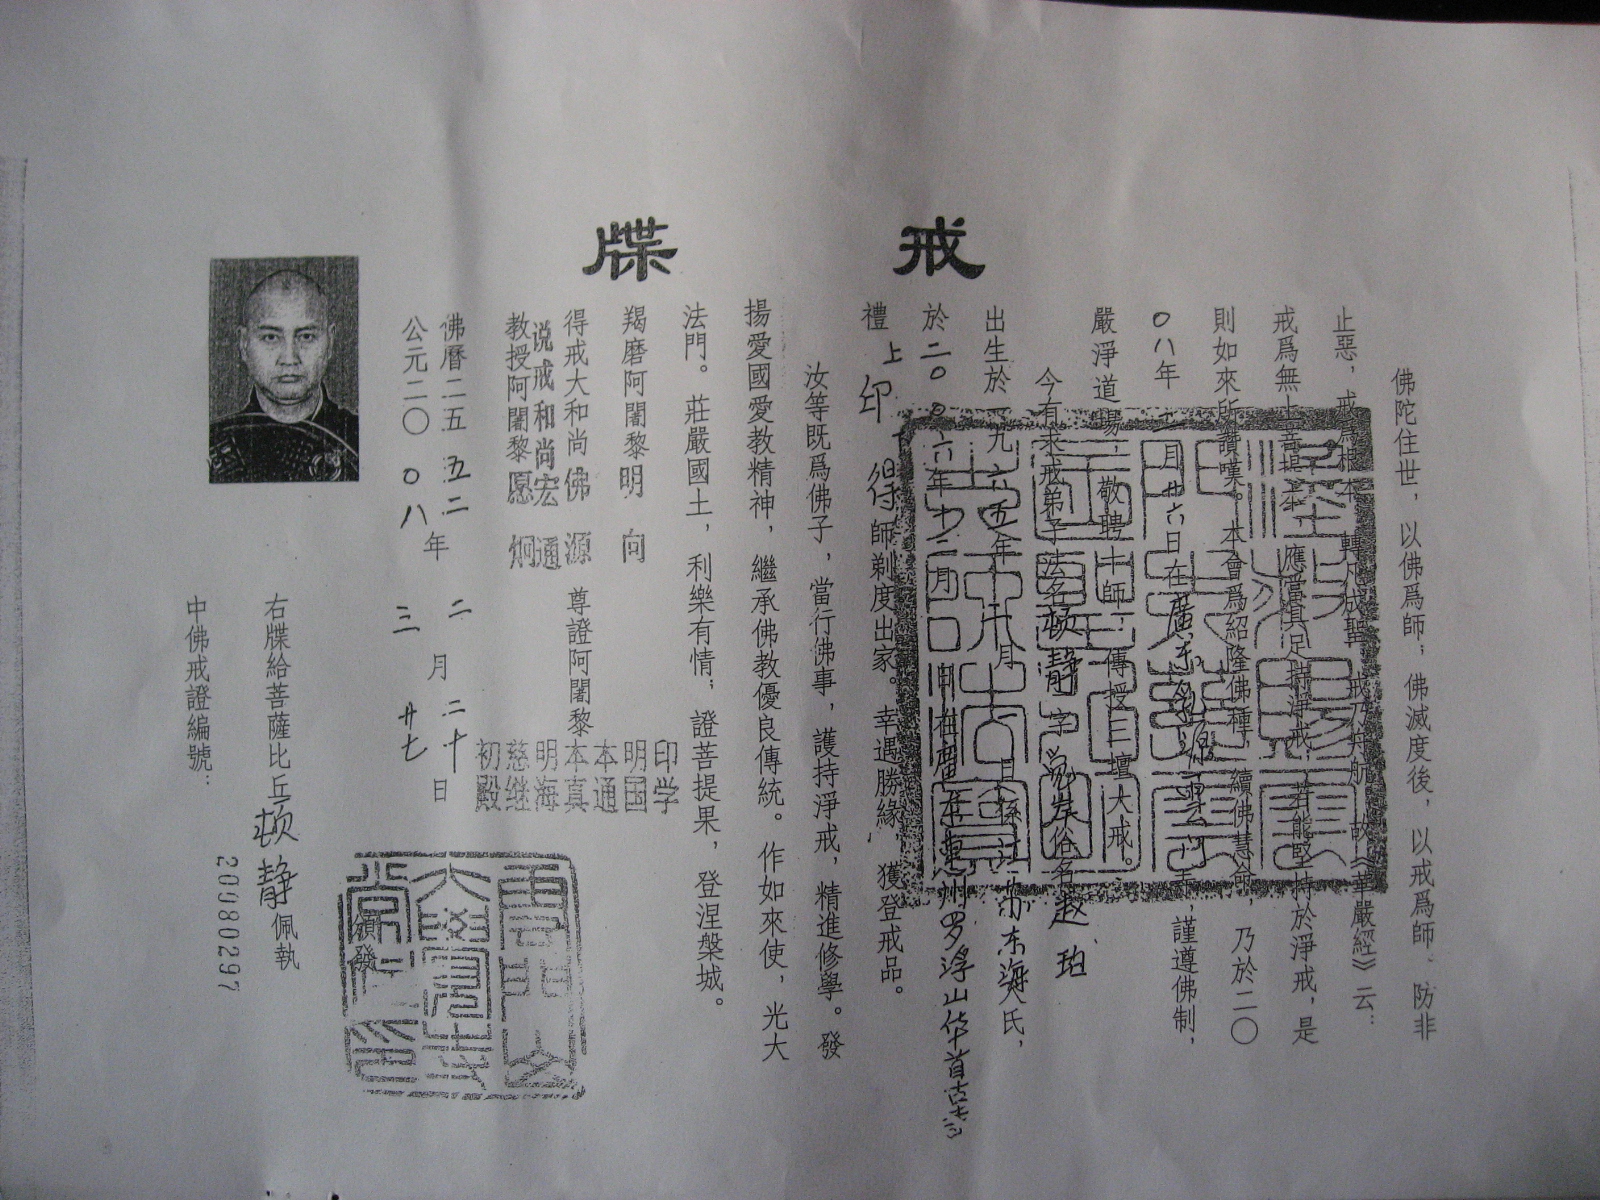 戒牒
佛陀住世，以佛爲師；佛滅度後，以戒爲師。防非
止惡，戒爲根本，轉凡成聖，戒乃舟航，故《華嚴經》云：
戒爲無上菩提本，應當具足持淨戒，若能堅持於淨戒，是
則如來所讚嘆。本會爲紹隆佛種，續佛慧命，乃於二〇
〇八年二月廿六日在廣东乳源雲门寺，謹遵佛制，
嚴淨道場，敬聘十師，傳授三壇大戒。
今有求戒弟子法名顿静字觉岸俗名赵珀
出生於一九六五年十一月日係江苏东海人氏，
於二〇〇六年十二月日在廣东惠州罗浮山华首古寺
禮上印下得師剃度出家。幸遇勝緣，獲登戒品。
汝等既爲佛子，當行佛事，護持淨戒，精進修學。發
揚愛國愛教精神，繼承佛教優良傳統。作如來使，光大
法門。莊嚴國土，利樂有情；證菩提果，登涅槃城。
羯磨阿闍黎明向
得戒大和尚佛源
说戒和尚宏通
教授阿闍黎愿炯
尊證阿闍黎
印学
明国
本通
本真
明海
慈继
初殿
佛曆二五五二年二月二十日
公元二〇〇八年三月廿七日
頒發
右牒給菩薩比丘顿静佩執
中佛戒證編號：
20080297